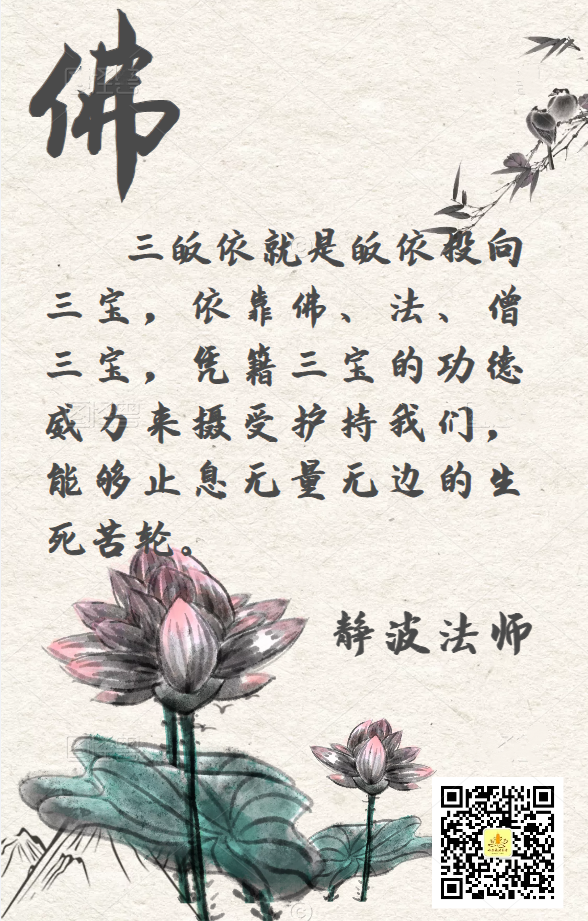 佛
三皈依就是皈依投向
三宝，依靠佛、法、僧
三宝，凭籍三宝的功德
威力来摄受护持我们，
能够止息无量无边的生
死苦轮。
静波法师